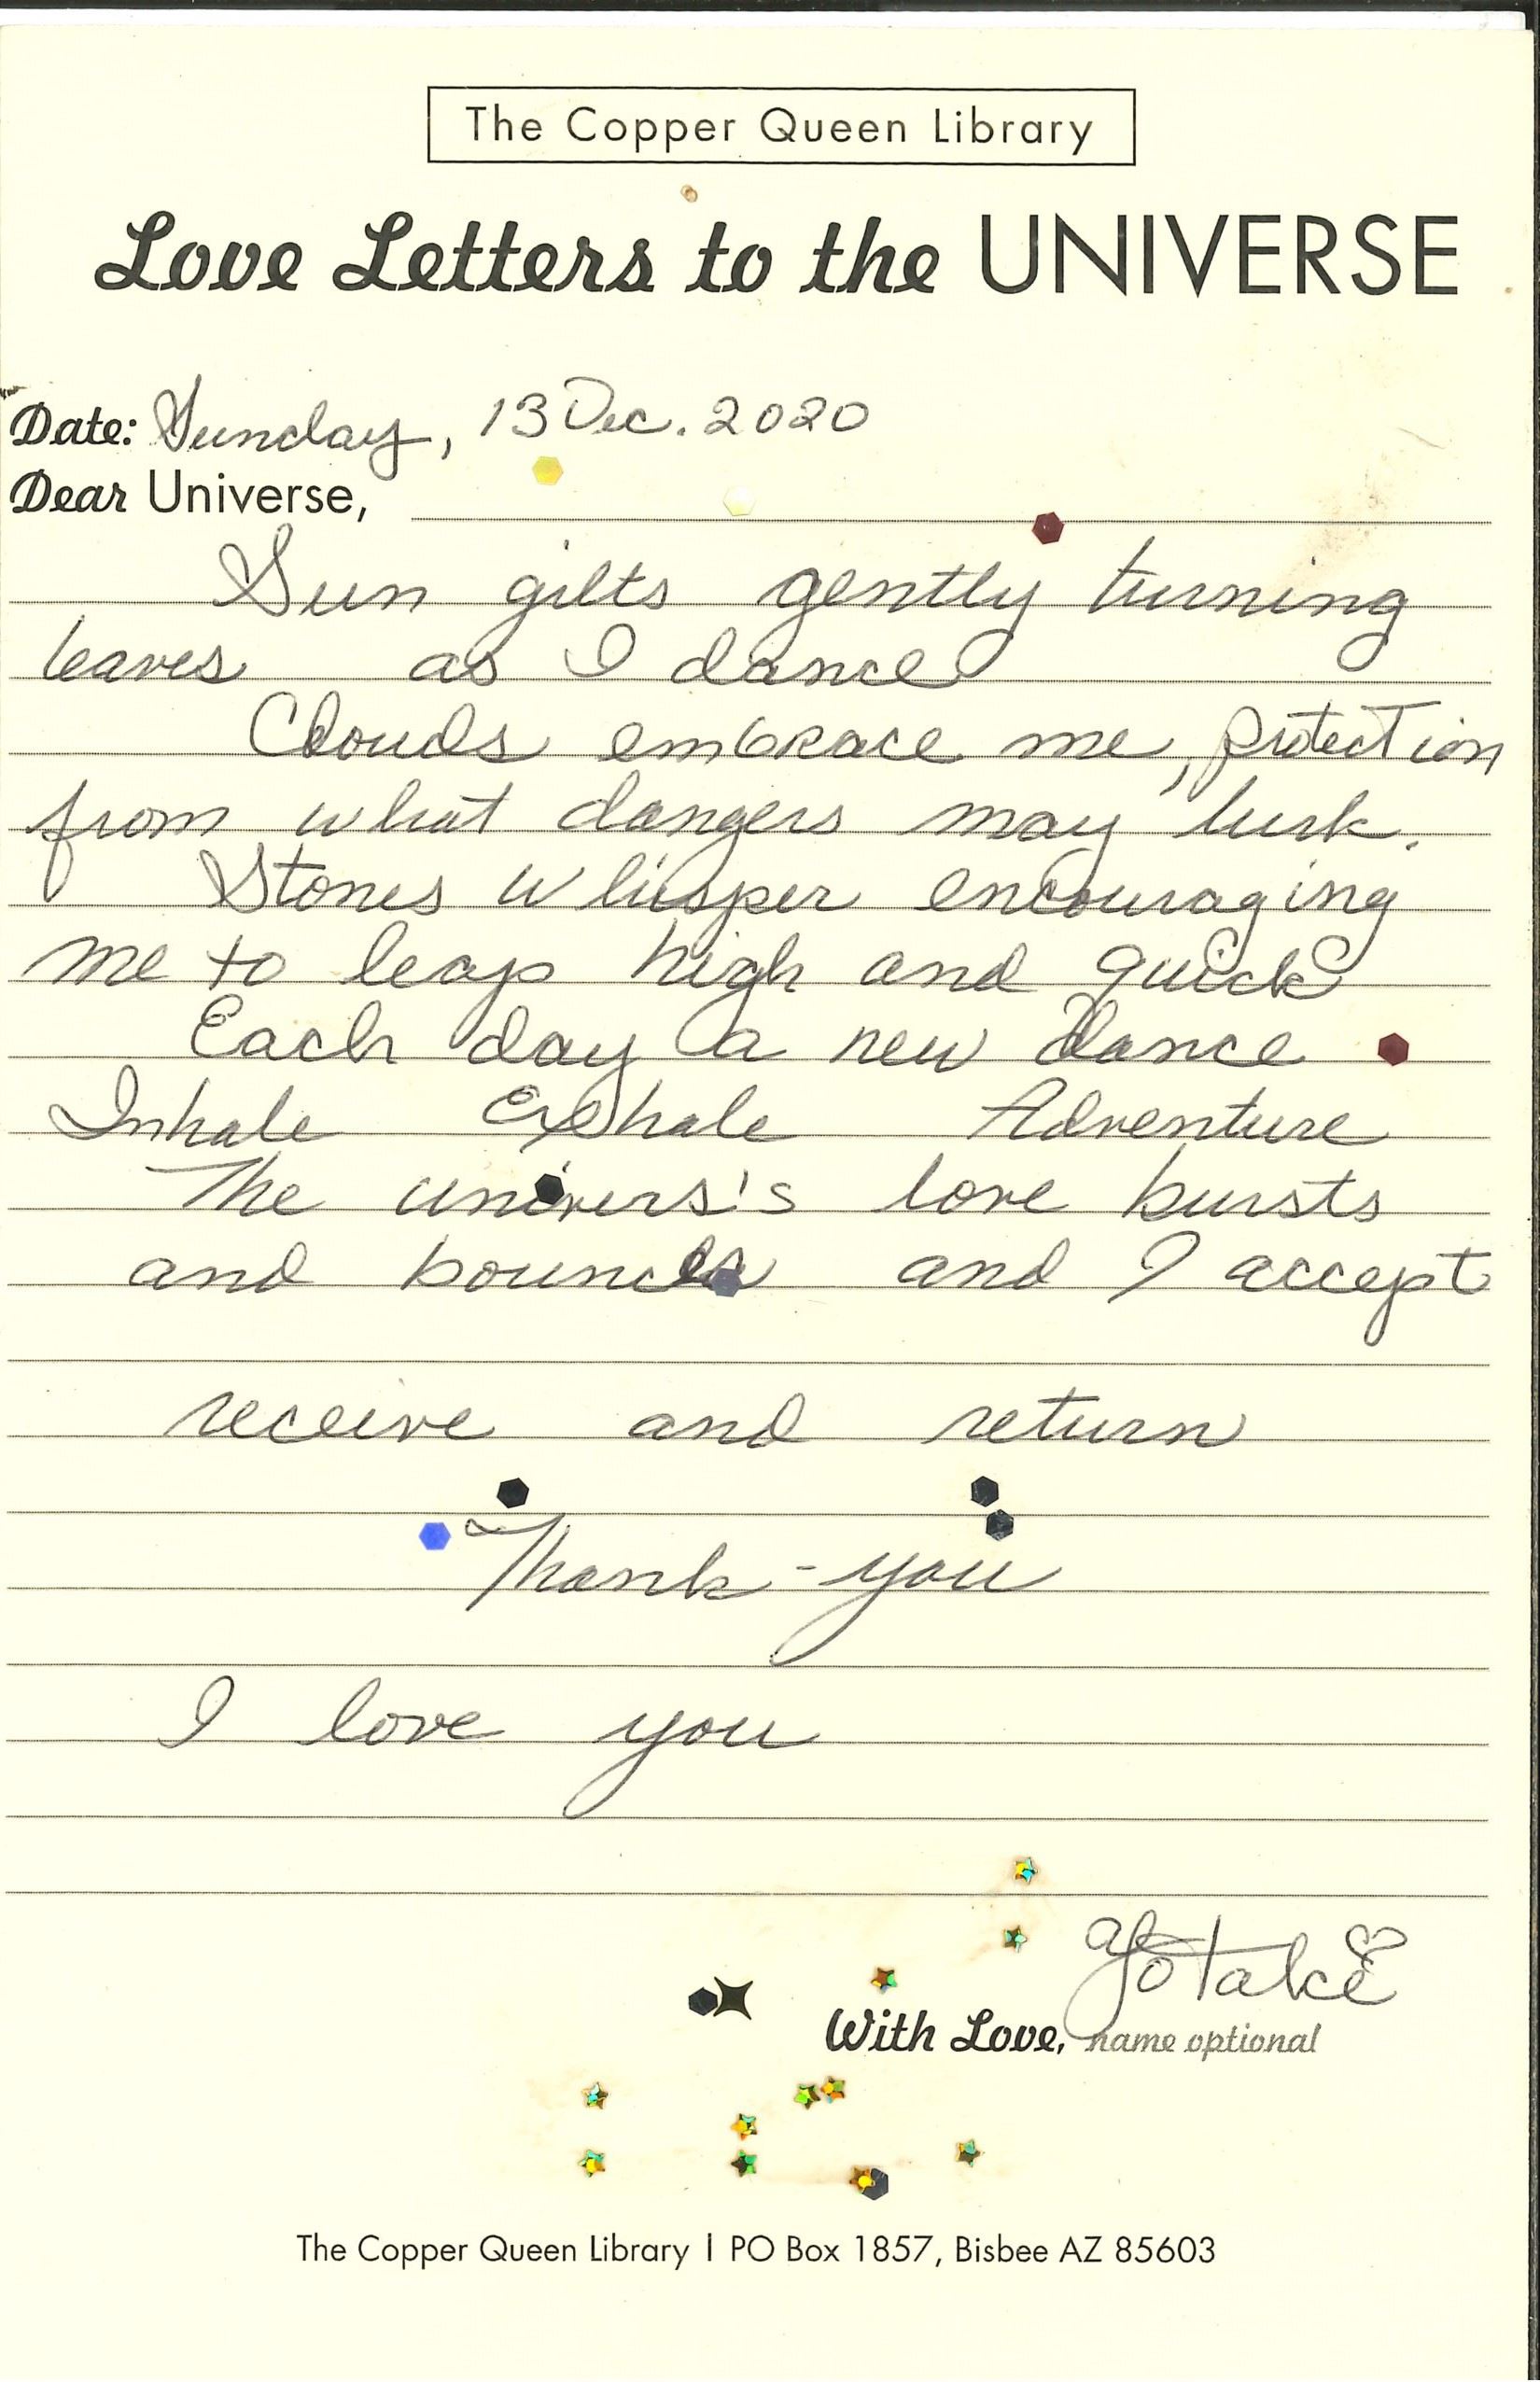 The Copper Queen Library
Love Letters to the UNIVERSE
Date: Sunday, 13 Dec. 2020
Dear Universe,
Sun gilts gently turning
leaves as I dance
Clouds embrace me, protection
from what dangers may lurk.
Stones whisper encouraging
me to leap high and quick
Each day a new dance
Inhale Exhale Adventure
The univers's love bursts
and bounces and I accept
receive and return
Thank-you
I love you
Yotake
With Love, name optional
The Copper Queen Library | PO Box 1857, Bisbee AZ 85603